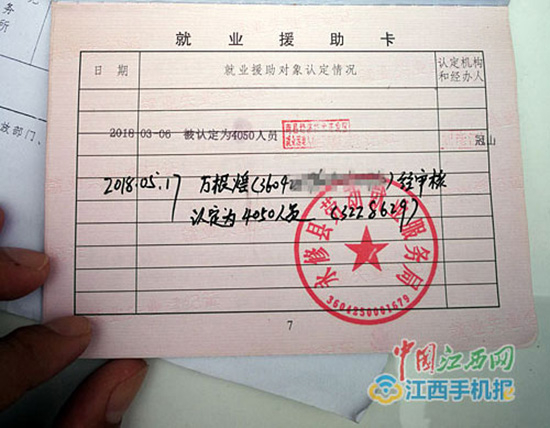 就业援助卡
日期
就业援助对象认定情况
认定机构
和经办人
2018-03-06 被认定为4050人员
冠山
2018.05.17 万根煌(3604)经审核
认定为4050人员 (3228629)
永修县劳动就业服务局
3604250001679
7
务
所
放部门、
中国江西网
江西手机报